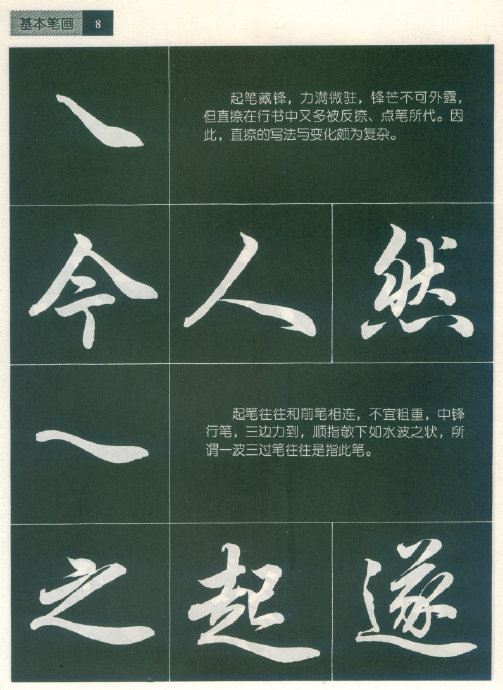 基本笔画 8
起笔藏锋，力满微驻，锋芒不可外露，
但直捺在行书中又多被反捺、点笔所代。因
此，直捺的写法与变化颇为复杂。
今 人 然
起笔往往和前笔相连，不宜粗重，中锋
行笔，三边力到，顺指敬下如水波之状，所
谓一波三过笔往往是指此笔。
之 起 遂